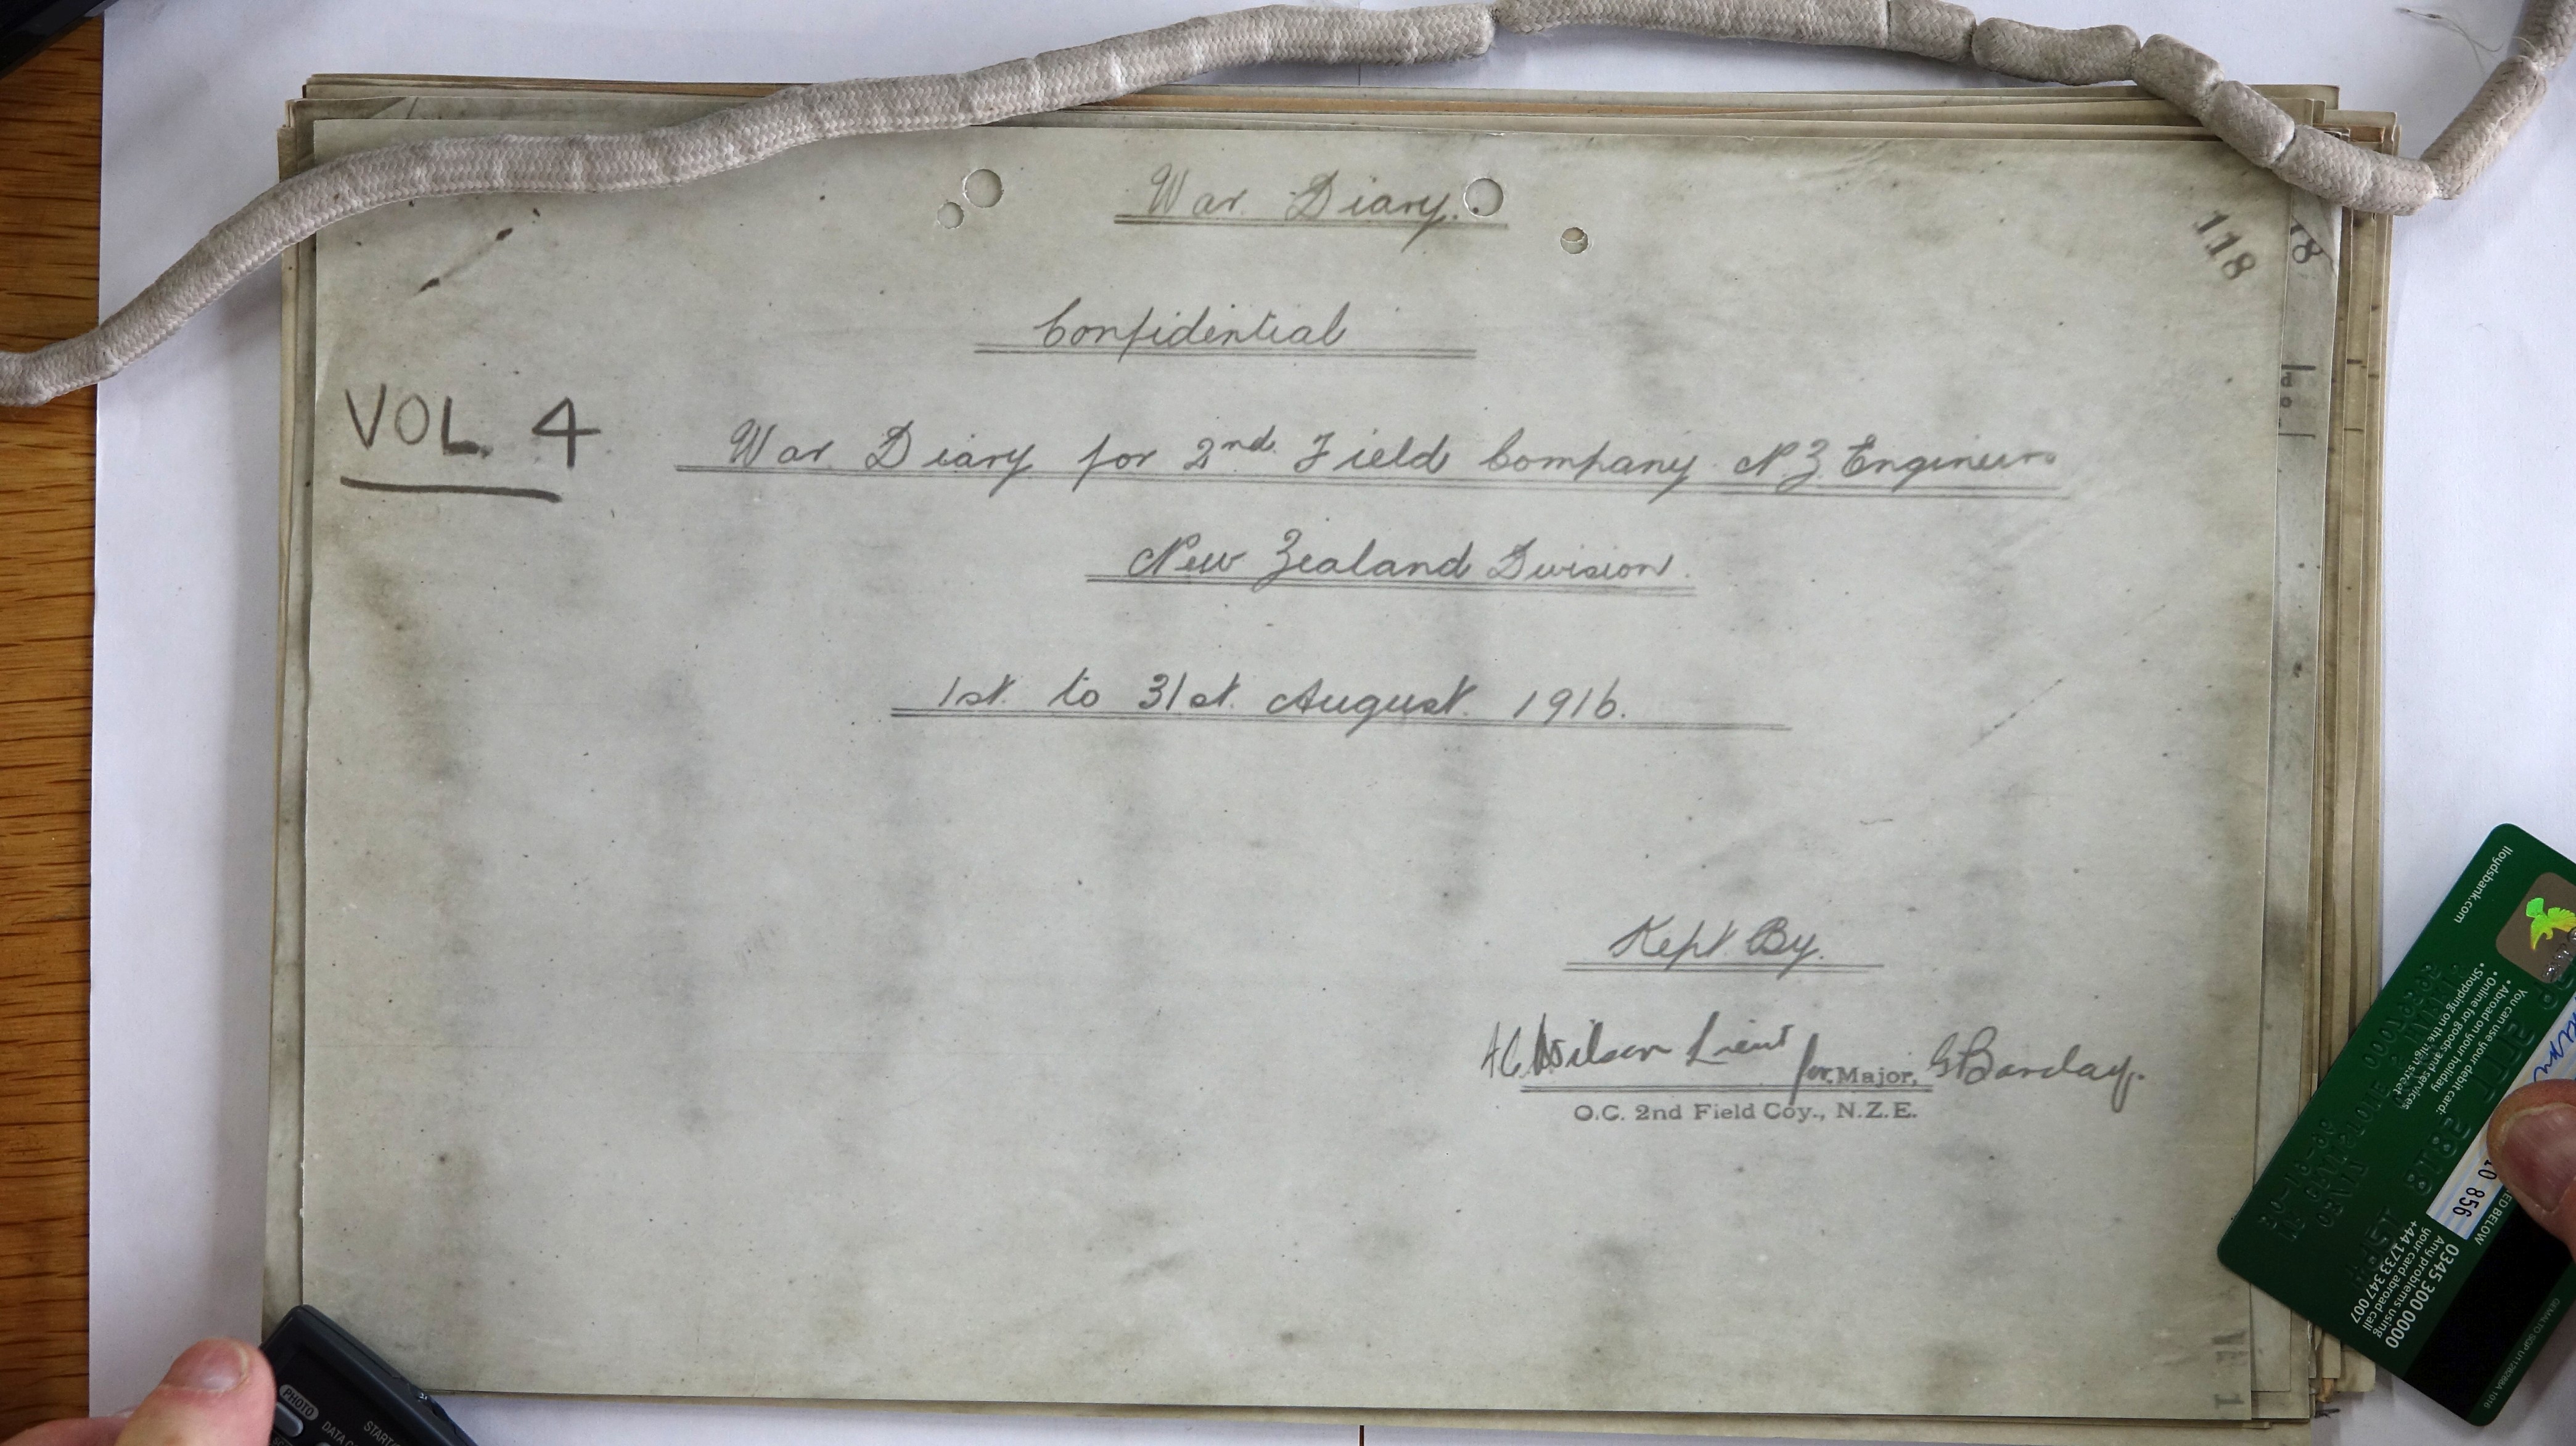 War Diary.
118
18
Confidential
VOL 4
War Diary for 2nd. Field Company N.Z. Engineers
New Zealand Division.
1st. to 31st. August. 1916.
Kept By.
Wilson Lieut for Major, G Barclay.
O.C. 2nd Field Coy., N.Z.E.
lloydsbank.com
You can use your debit card:
• Abroad on your holiday
• Online for goods and services
• Shopping on the high street
ED BELOW
0345 300 0000
Any problems using
your card abroad call
+44 1733 347 007
PHOTO
DATA
START